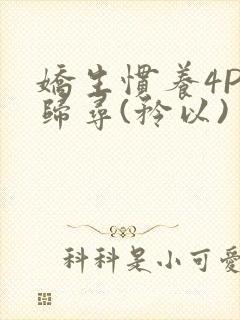 嬌生慣養4P
歸尋(矜以)
科科是小可愛